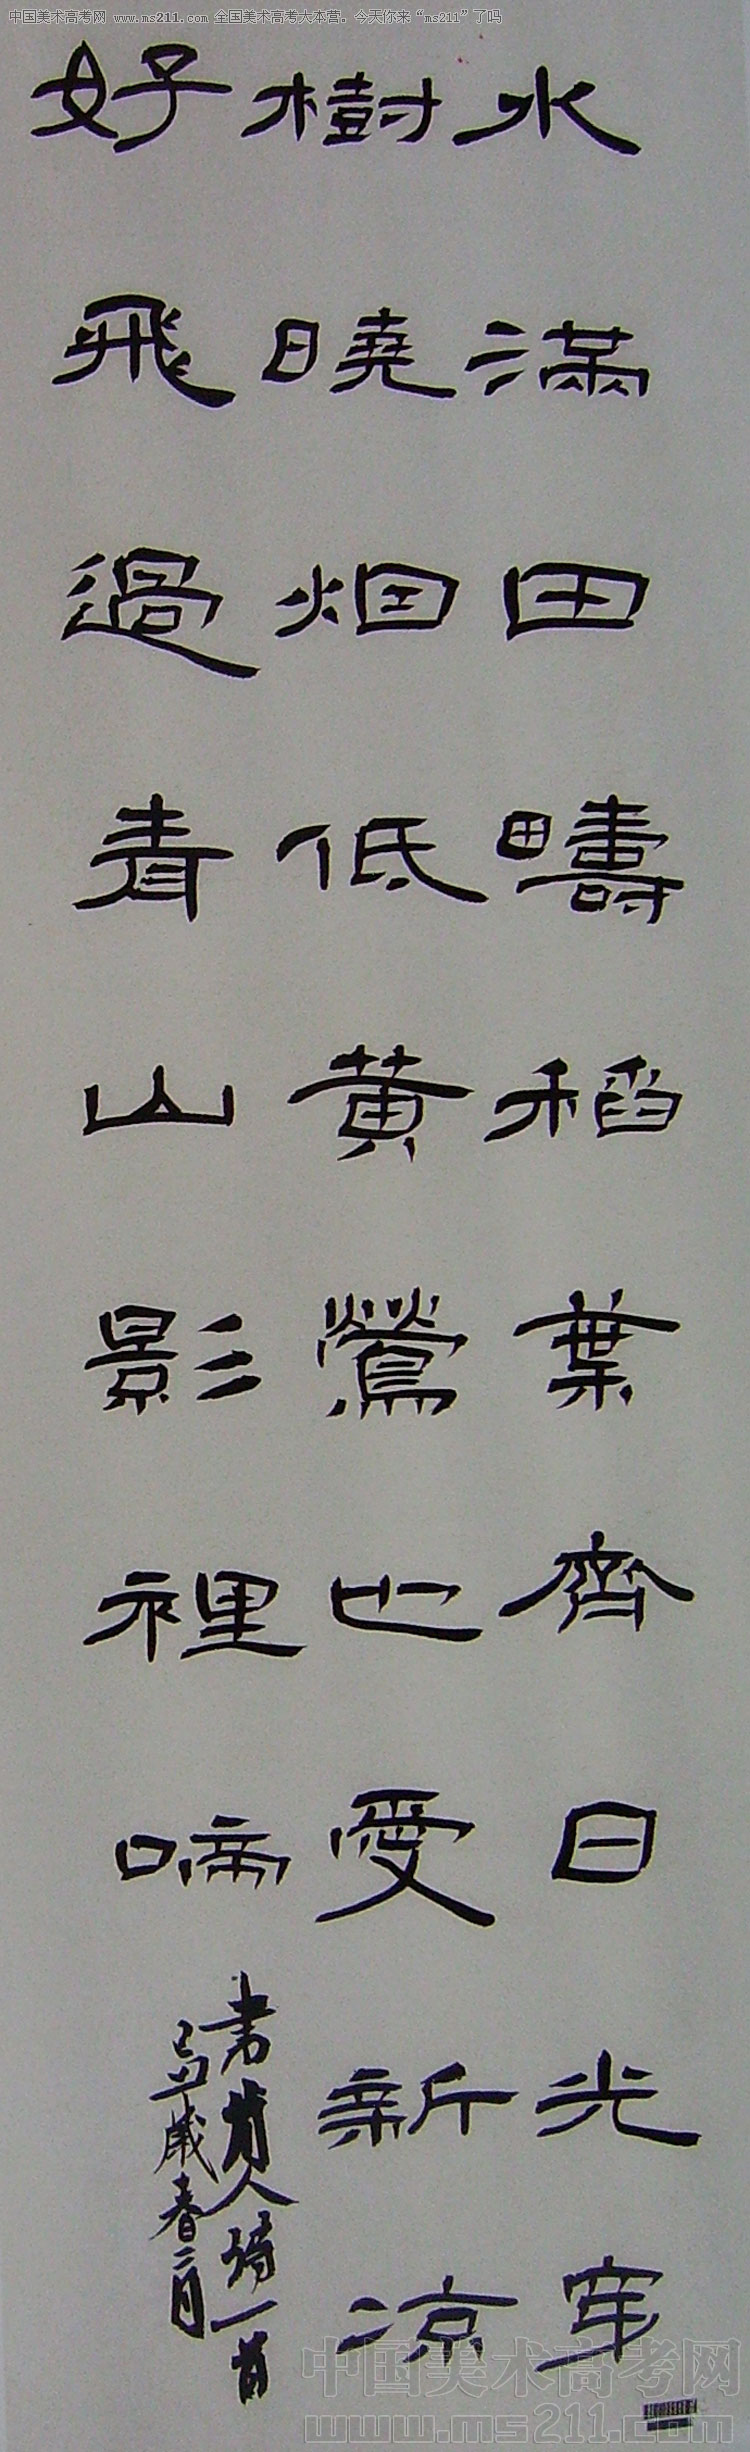 中国美术高考网 www.ms211.com 全国美术高考大本营。今天你来“ms211”了吗
水滿田疇稻葉齊日光穿
樹曉烟低黄鶯也愛新凉
好飛過青山影裡啼
書前人詩一首
己卯歲春二月
中国美术高考网
www.ms211.com